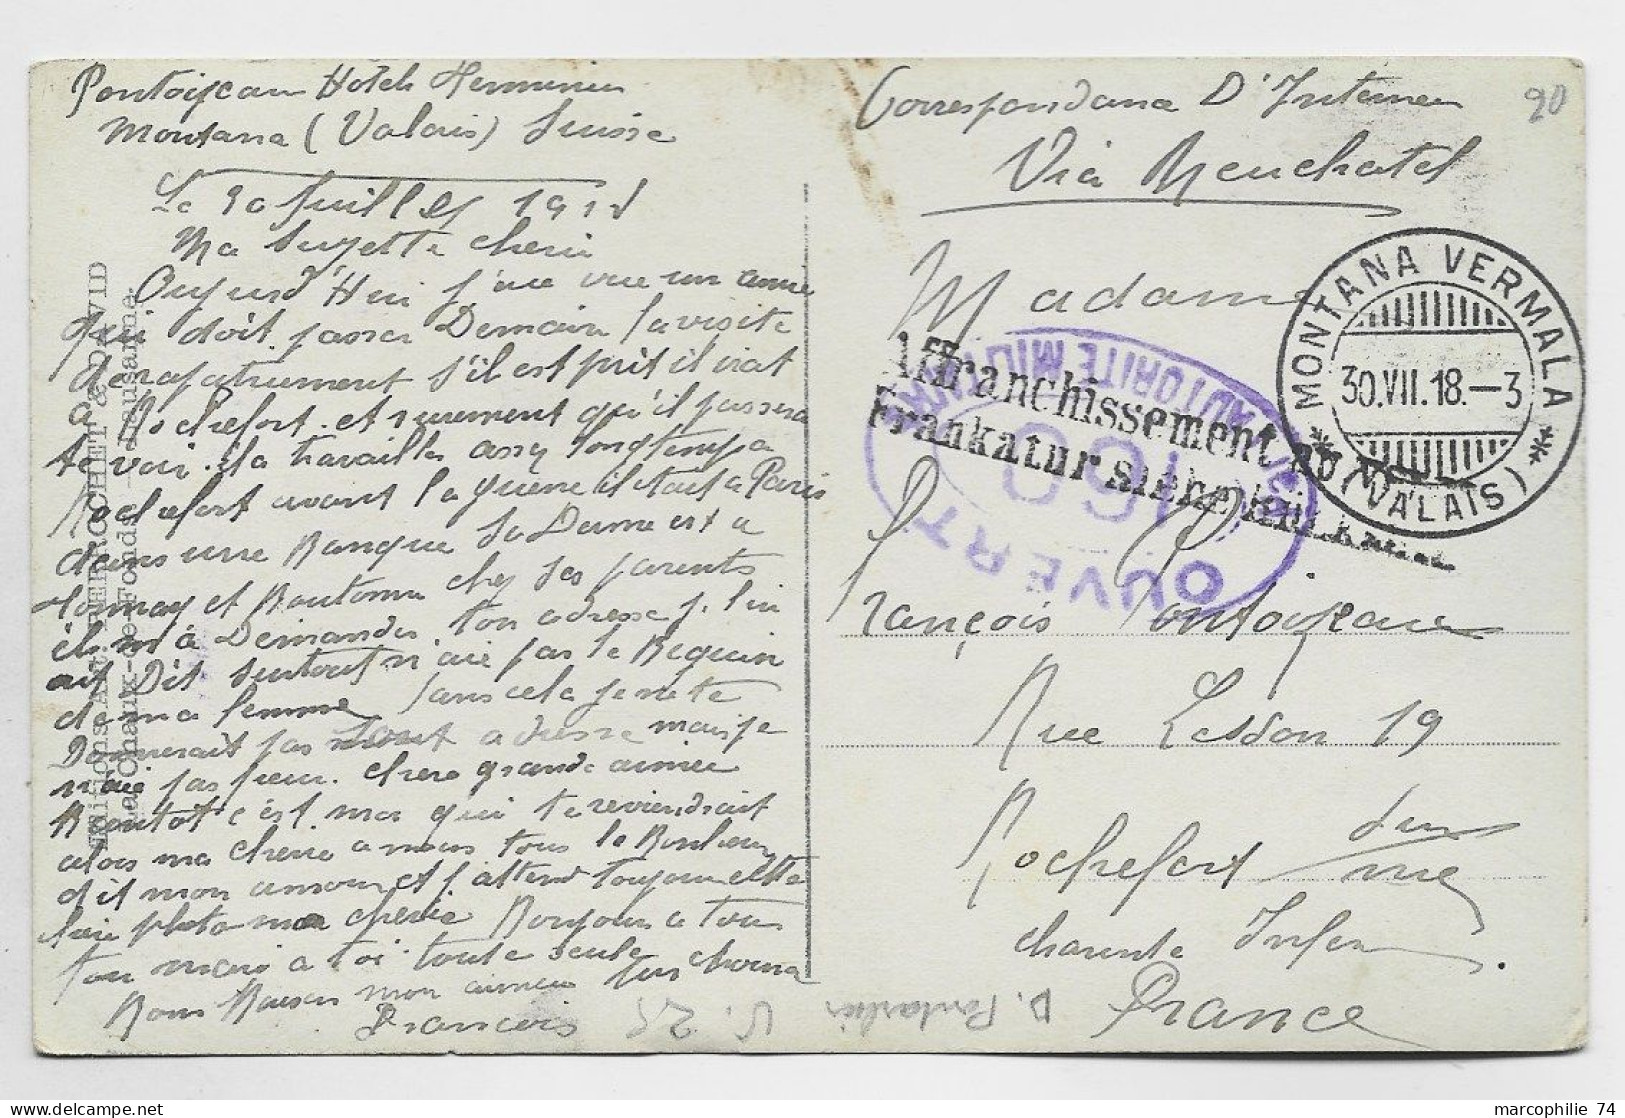 Pontoizeau Hotel
Montana (Valais) Suisse
Le 30 Juillet 1918
Ma Suzette cherie
Oujourd'Hui j'ai vue un amie
qui doit passer Demain la visite
de rapatriement s'il est prit il irat
a Rochefort et surement qu'il passera
te voir. il a travailler assez longtemps a
Rochefort avant la guerre il etait a Paris
dans une Banque Sa Dame est a
Tonnay et Boutonne chez ses parents
il m'a Demander ton adresse je lui
ait Dit surtout n'aie pas le Bequin
de ma femme sans cela je ne te
Donnerait pas adresse mais je
n'aie pas peur. chere grande aimee
Bientot c'est moi qui te reviendrait
alors ma cherie a nous tous le Bonheur
dit mon amour et j'attend toujours cette
photo ma cherie Bonjour a tous
ton mari a toi toute seule
Bons Baisers mon aimee
Francois
Editions Art. PERROCHET & DAVID
La Chaux-de-Fonds - Lausanne.
Correspondance D'Interner
Via Neuchatel
90
Madame
François Pontoizeau
Rue Lesson 19
Rochefort sur
mer
charente Infer
France
MONTANA VERMALA
30.VII.18.-3
(VALAIS)
Affranchissement
Frankatur siehe
OUVERT
PAR L'AUTORITE MILITAIRE
160
D. Pontarlier
V. 25
marcophilie 74